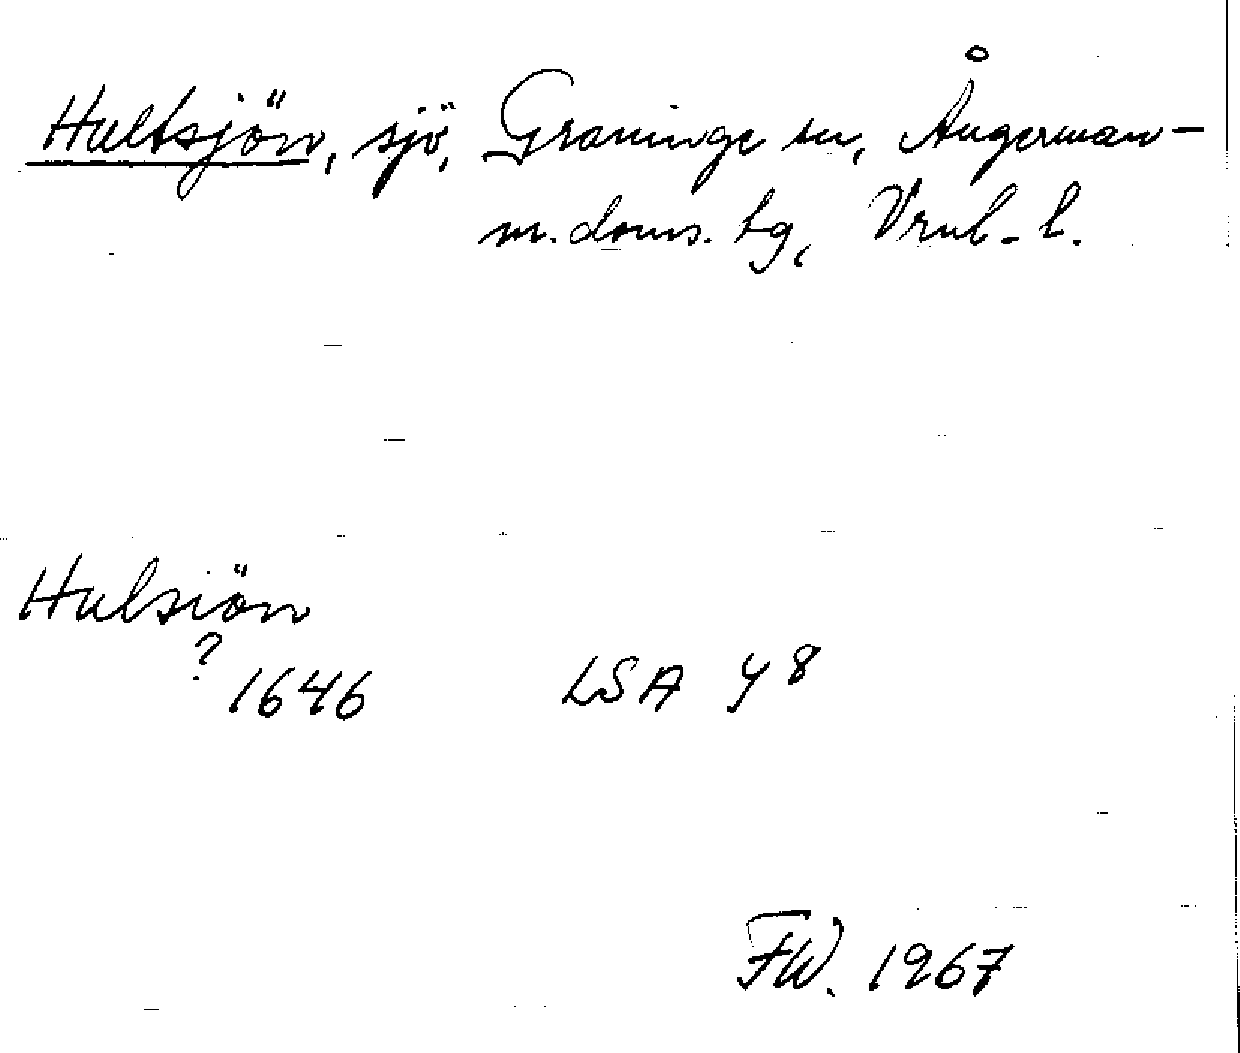 Hultsjön, sjö, Graninge sn, Ångerman-
m. doms. tg, Vrnl. l.
Hulsiön
?
1646 LSA Y 8
FW. 1967